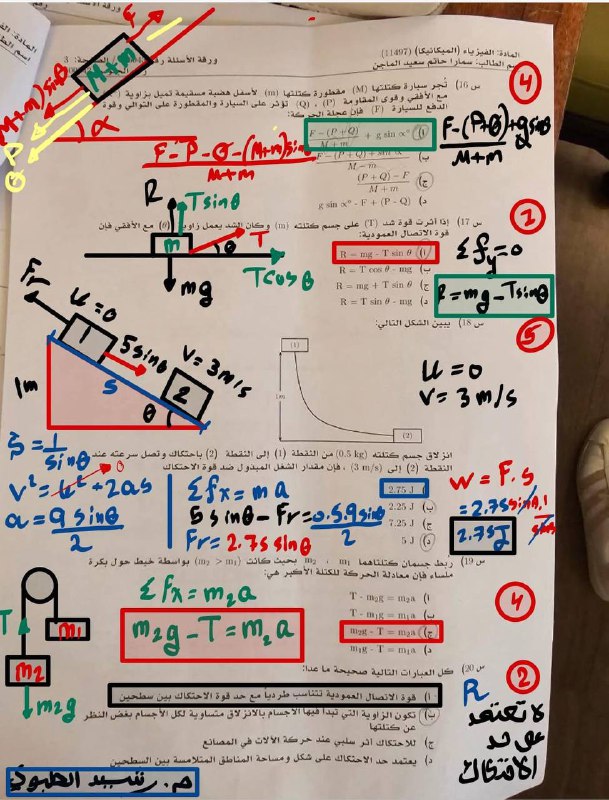 المادة: الفيزياء (الميكانيكا) (11497)
اسم الطالب: سمارا حاتم سعيد الماجن
المادة: الف
اسم الطال
F
M+m
(M+m) sinθ
P
Q
α
4
س 16) تُجر سيارة كتلتها (M) مقطورة كتلتها (m) لأسفل هضبة مستقيمة تميل بزاوية
مع الأفقي وقوى المقاومة (P) ، (Q) تؤثر على السيارة والمقطورة على التوالي وقوة
الدفع للسيارة (F) فإن عجلة الحركة:
أ) F - (P + Q) / M + m + g sin ∝°
ب) F - (P+Q) + sin ∝° / M + m
ج) (P + Q) - F / M + m
د) g sin ∝° - F + (P - Q)
F - (P+Q) / M+m + g sinθ
F - P - Q - (M+m) sin / M+m
R
T sinθ
T
θ
m
T cos θ
mg
2
س 17) إذا أثرت قوة شد (T) على جسم كتلته (m) وكان الشد يعمل زاوية (θ) مع الأفقي فإن
قوة الاتصال العمودية:
أ) R = mg - T sin θ
ب) R = T cos θ - mg
ج) R = mg + T sin θ
د) R = T sin θ - mg
Σfy=0
R = mg - Tsinθ
5
س 18) يبين الشكل التالي:
(1)
1m
(2)
Fr
u = 0
1
5 sinθ
V = 3 m/s
S
2
θ
1m
u = 0
V = 3 m/s
انزلاق جسم كتلته (0.5 kg) من النقطة (1) إلى النقطة (2) باحتكاك وتصل سرعته عند
النقطة (2) إلى (3 m/s) ، فإن مقدار الشغل المبذول ضد قوة الاحتكاك
أ) 2.75 J
ب) 2.25 J
ج) 7.25 J
د) 5 J
S = 1 / sinθ
v² = u² + 2as
0
a = 9 sinθ / 2
Σfx = ma
5 sinθ - Fr = 0.5.9 sinθ / 2
Fr = 2.75 sinθ
W = F.s
2.75J
س 19) ربط جسمان كتلتاهما m₁ ، m₂ بحيث كانت (m₂ > m₁) بواسطة خيط حول بكرة
ملساء فإن معادلة الحركة للكتلة الأكبر هي:
أ) T - m₂g = m₂a
ب) T - m₁g = m₁a
ج) m₂g - T = m₂a
د) m₁g - T = m₁a
4
T
m₁
m₂
m₂g
Σfx = m₂a
m₂g - T = m₂a
س 20) كل العبارات التالية صحيحة ما عدا:
أ) قوة الاتصال العمودية تتناسب طردياً مع حد قوة الاحتكاك بين سطحين
ب) تكون الزاوية التي تبدأ فيها الأجسام بالانزلاق متساوية لكل الأجسام بغض النظر
عن كتلتها
ج) للاحتكاك أثر سلبي عند حركة الآلات في المصانع
د) يعتمد حد الاحتكاك على شكل ومساحة المناطق المتلامسة بين السطحين
2
R
لا تعتمد
على حد
الاحتكاك